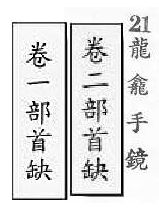 21龍龕手鏡
卷二部首缺
卷一部首缺